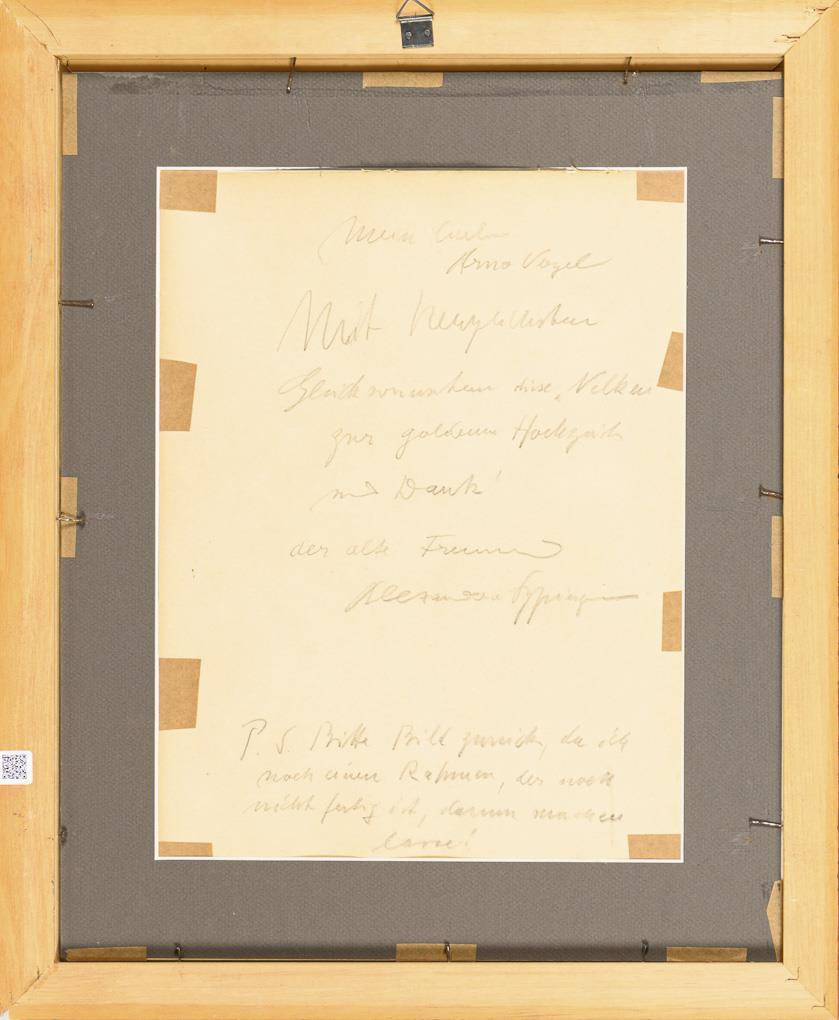 Mein lieber
Arno Vogel
Mit herzlichsten
Glückwünschen diese „Nelken
zur goldenen Hochzeit
und Dank!
der alte Freund
Alexander
P. S. Bitte Bild zurück, da ich
noch einen Rahmen, der noch
nicht fertig ist, darum machen
lasse!